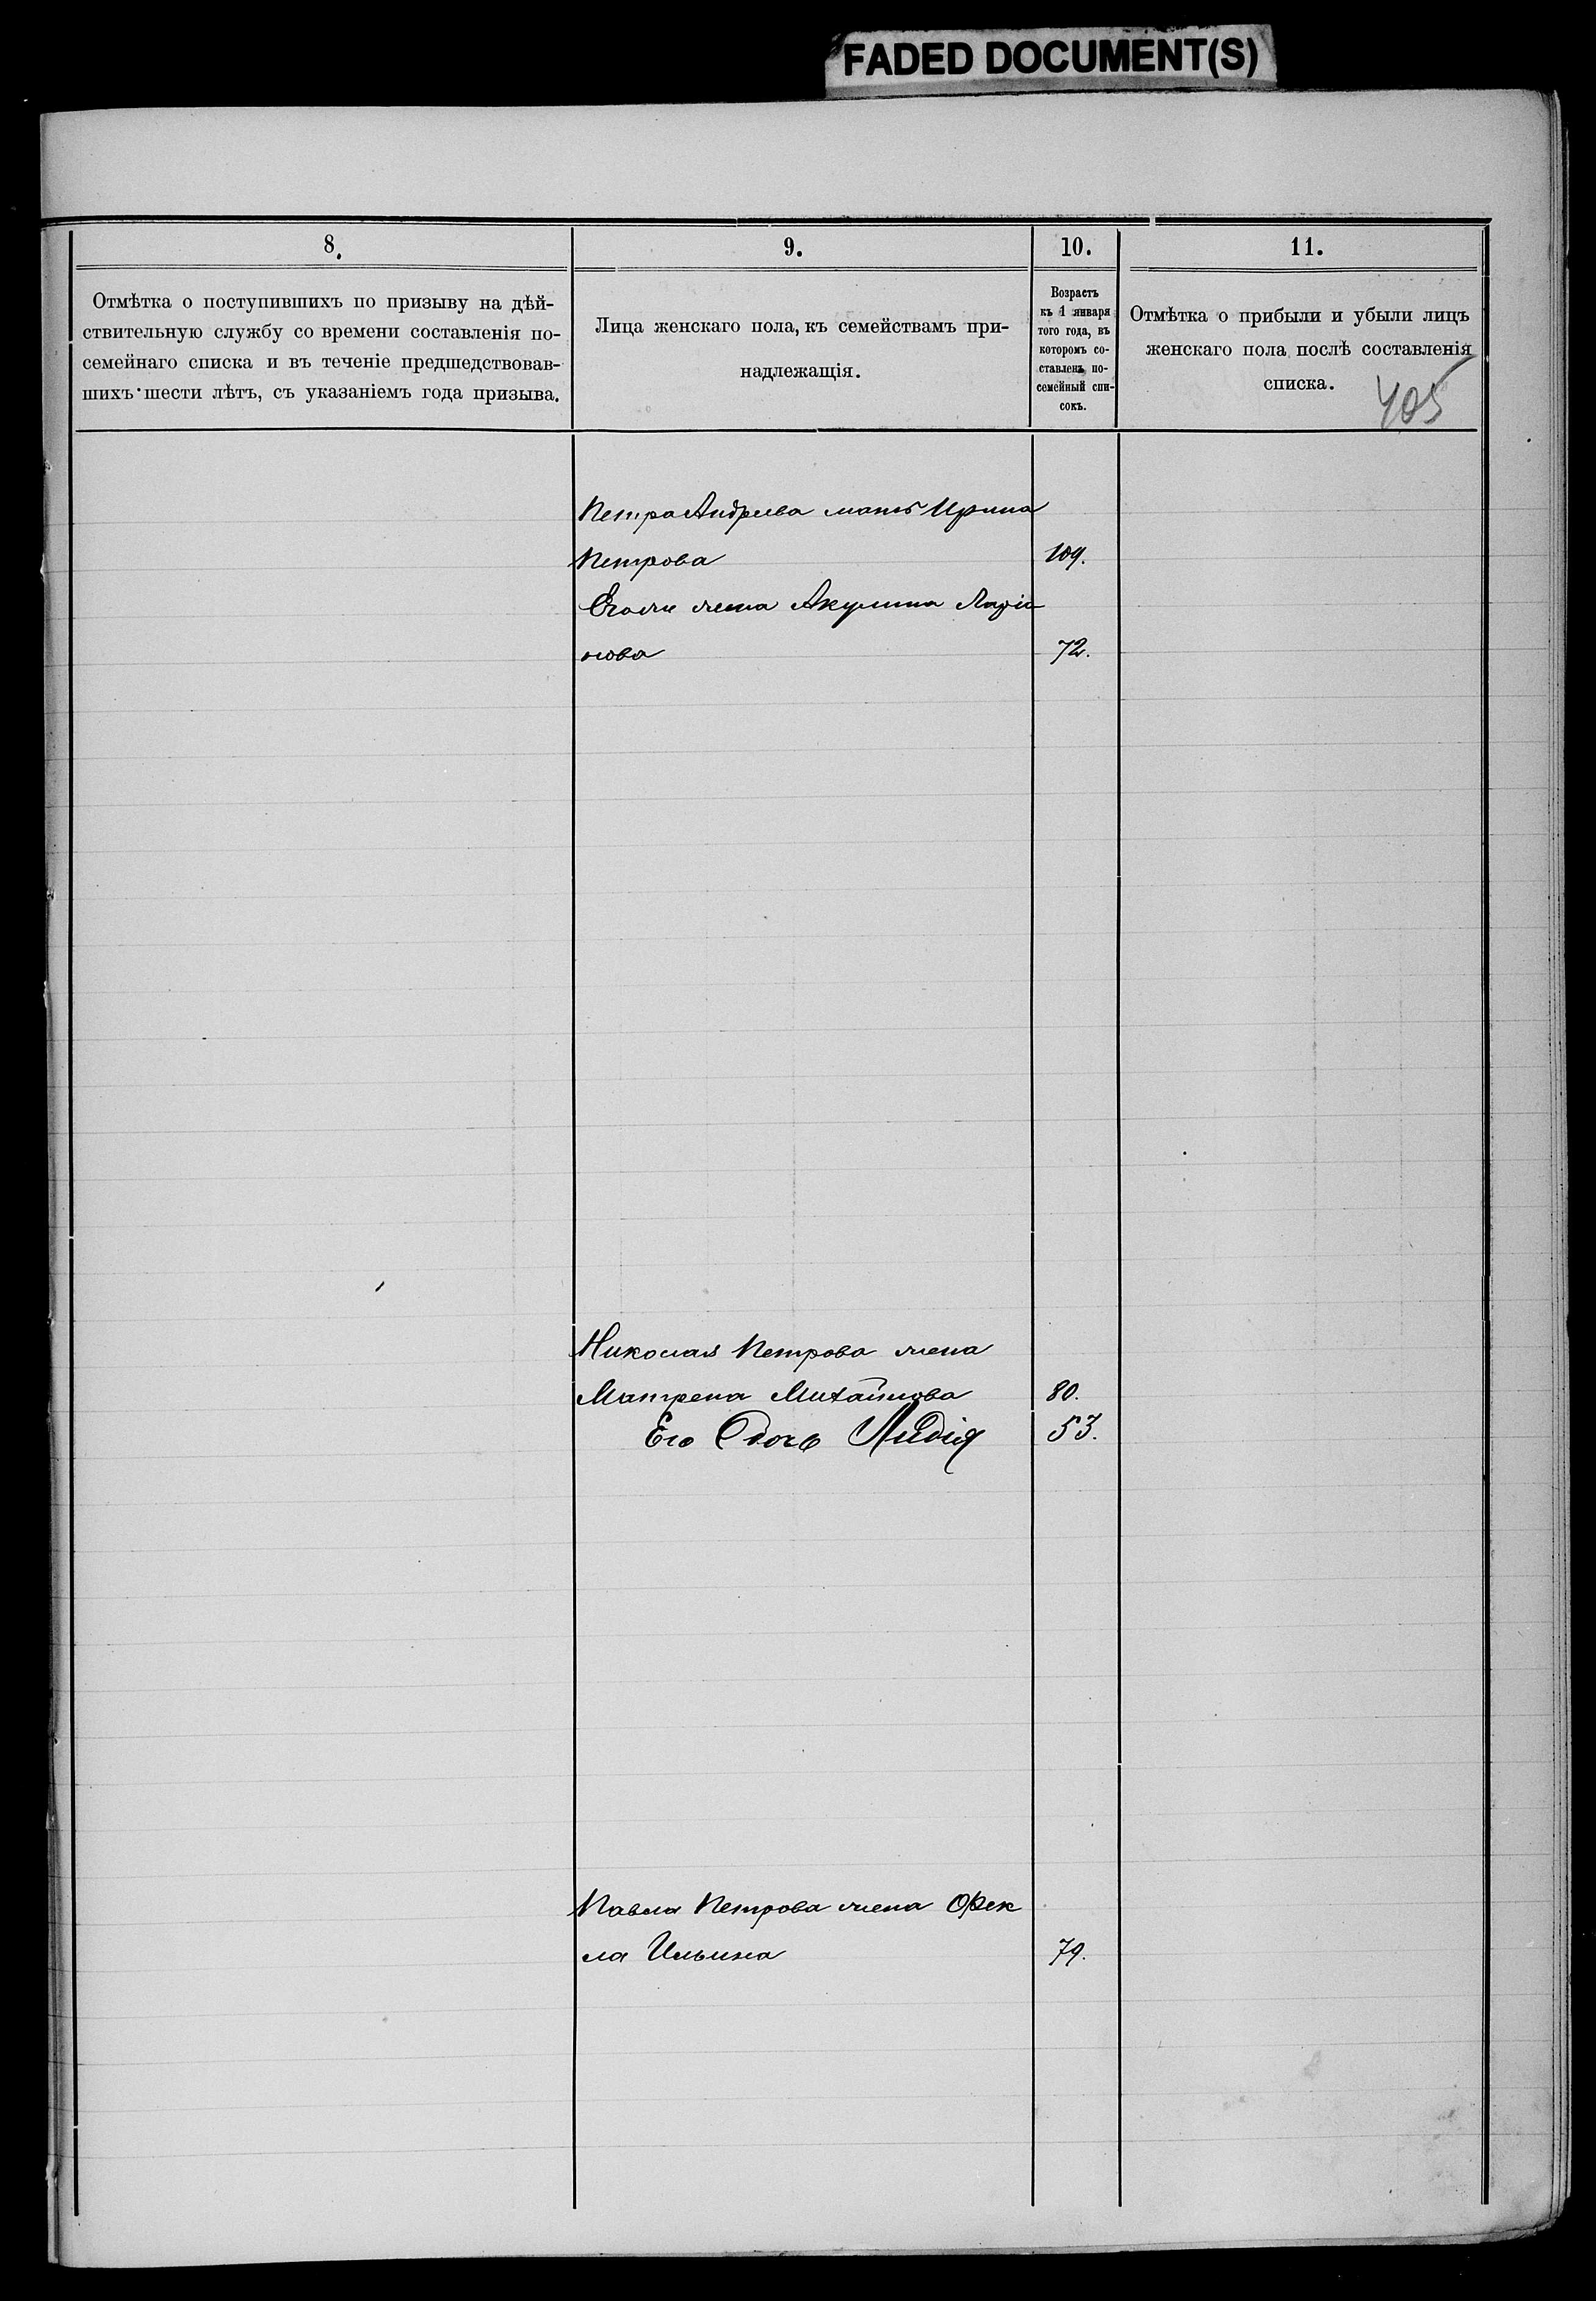 FADED DOCUMENT(S)
8.
9.
10.
11.
Отмѣтка о поступившихъ по призыву на дѣй-
ствительную службу со времени составленія по-
семейнаго списка и въ теченіе предшедствовав-
шихъ шести лѣтъ, съ указаніемъ года призыва.
Лица женскаго пола, къ семействамъ при-
надлежащія.
Возрастъ
къ 1 января
того года, въ
которомъ со-
ставленъ по-
семейный спи-
сокъ.
Отмѣтка о прибыли и убыли лицъ
женскаго пола послѣ составленія
списка.
405
Петра Андреева мать Ирина
Петрова 109.
Его жена Акулина Ларіо
нова 72.
Николая Петрова жена
Матрена Михайлова 80.
Его Дочь Лидія 53.
Павла Петрова жена Фек
ла Ильина 79.